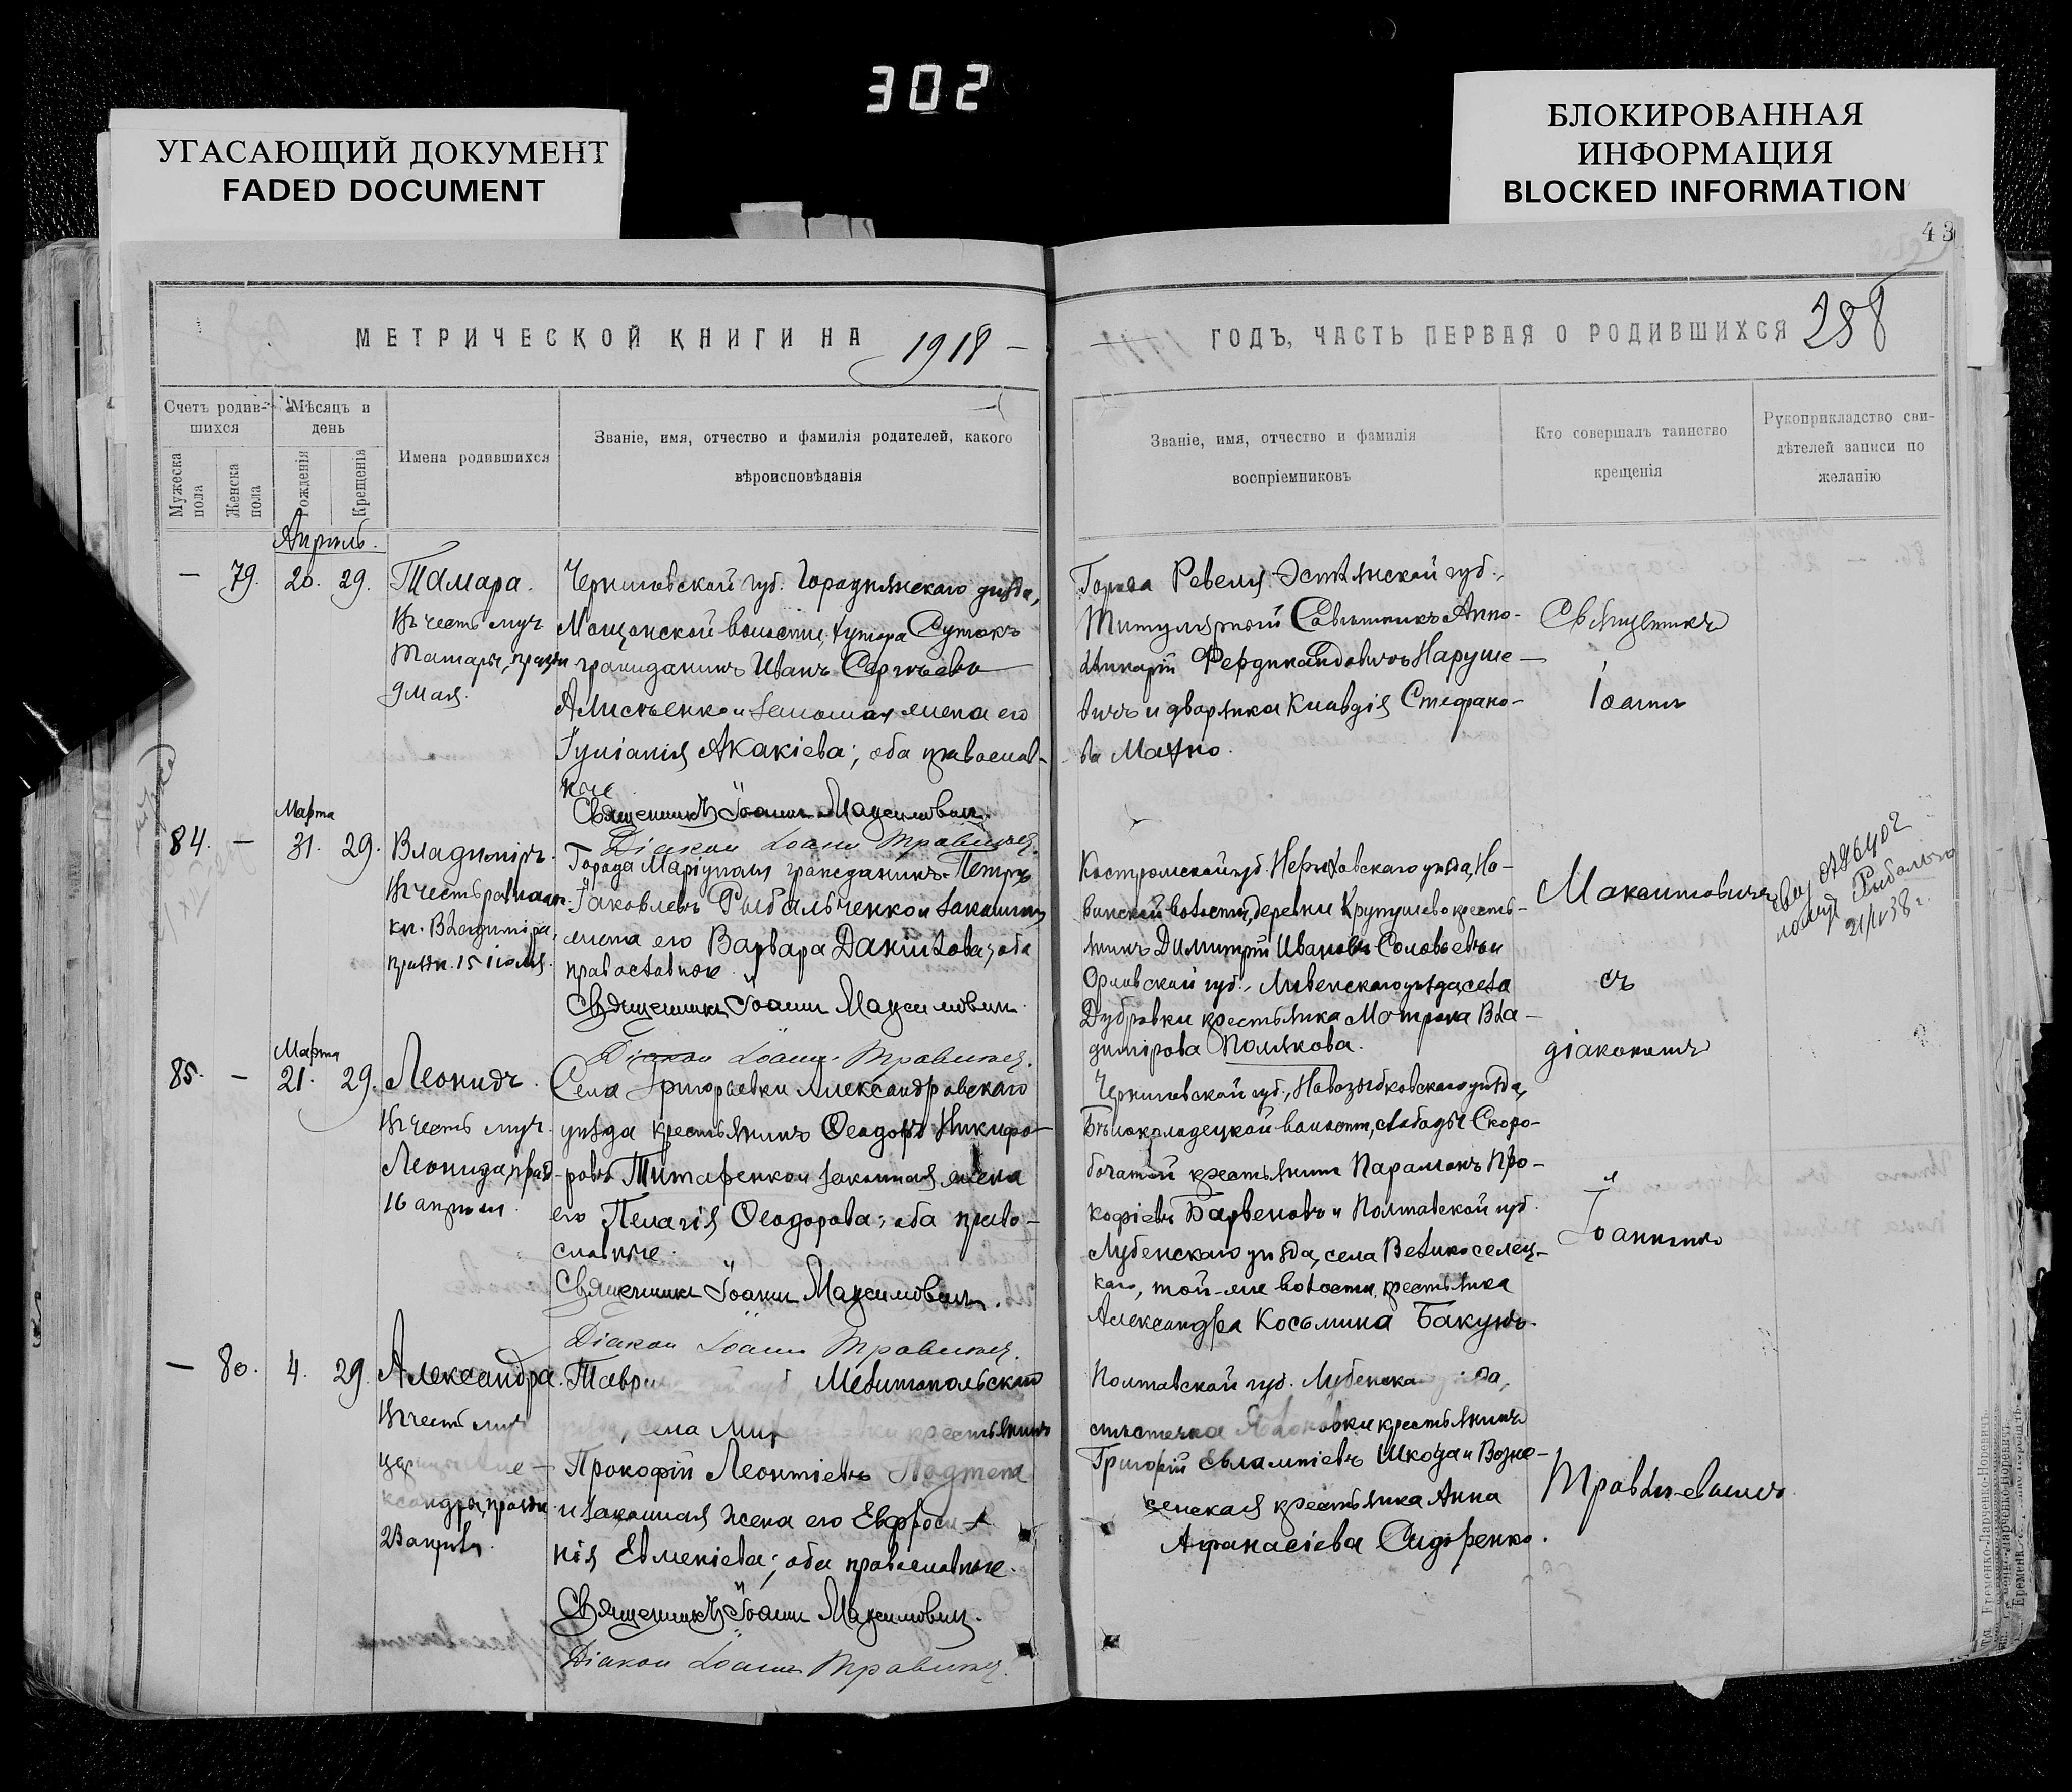 302
УГАСАЮЩИЙ ДОКУМЕНТ
FADED DOCUMENT
БЛОКИРОВАННАЯ
ИНФОРМАЦИЯ
BLOCKED INFORMATION
43
МЕТРИЧЕСКОЙ КНИГИ НА 1918
ГОДЪ, ЧАСТЬ ПЕРВАЯ О РОДИВШИХСЯ 288
Счетъ родив-
шихся
Мужеска пола
Женска пола
Мѣсяцъ и
день
Рожденія
Крещенія
Имена родившихся
Званіе, имя, отчество и фамилія родителей, какого
вѣроисповѣданія
Званіе, имя, отчество и фамилія
воспріемниковъ
Кто совершалъ таинство
крещенія
Рукоприкладство сви-
дѣтелей записи по
желанію
Апрѣль.
— 79. 20. 29.
Тамара.
Въ честь муч.
Тамары, праздн
9 мая.
Черниговской губ. Городнянскаго уѣзда,
волости, хутора Сутокъ
гражданинъ Иванъ Сергѣевъ
и законная жена его
Іуліанія Акакіева; оба православ-
ные
Священникъ Іоаннъ Максимович.
Діакон Іоаннъ
Города Ревеля Эстлянской губ.,
Титулярный Совѣтникъ Аппо-
линарій Фердинандовичъ Наруше-
вичъ и дворянка Клавдія Стефано-
ва Махно.
Священникъ
Іоаннъ
Марта
84. — 31. 29.
Владиміръ.
Въ честь равноап.
кн. Владиміра,
праздн. 15 іюля.
Города Маріуполя гражданинъ Петръ
Іаковлевъ Рыбальченко и законная
жена его Варвара Данилова; оба
православные.
Священникъ Іоаннъ Максимович.
Діакон Іоаннъ
Костромской губ. уѣзда, Но-
винской волости, деревни Крутушево кресть-
янинъ Димитрій Ивановъ Соловьевъ и
Орловской губ., Ливенскаго уѣзда, села
Дубровки крестьянка Мотрона Вла-
димірова Полякова.
Максимовичъ
съ
діакономъ
21/IV 38 г.
Марта
85. — 21. 29.
Леонидъ.
Въ честь муч.
Леонида, празд
16 апрѣля.
Села Григорьевки Александровскаго
уѣзда крестьянинъ Ѳеодоръ Никифо-
ровъ Титаренко и законная жена
его Пелагія Ѳеодорова; оба право-
славные.
Священникъ Іоаннъ Максимович.
Діакон Іоаннъ
Черниговской губ., Новозыбковскаго уѣзда,
Бѣлоколодецкой волости, слободы Скоро-
богатой крестьянинъ Парамонъ Про-
кофіевъ Барвеновъ и Полтавской губ.
Лубенскаго уѣзда, села Великоселец-
каго, той-же волости, крестьянка
Александра Косьмина Бакунъ.
Іоанномъ
— 80. 4. 29.
Александра.
Въ честь муч
царицы Але-
ксандры, праздн
23 апрѣля.
Мелитопольскаго
села крестьянинъ
Прокофій Леонтіевъ
и законная жена его Евфроси-
нія Евменіева; оба православные.
Священникъ Іоаннъ Максимович.
Діакон Іоаннъ
Полтавской губ. Лубенска
мѣстечка крестьянинъ
Григорій Евлампіевъ Шкода и Возне-
сенская крестьянка Анна
Афанасіева Сидоренко.